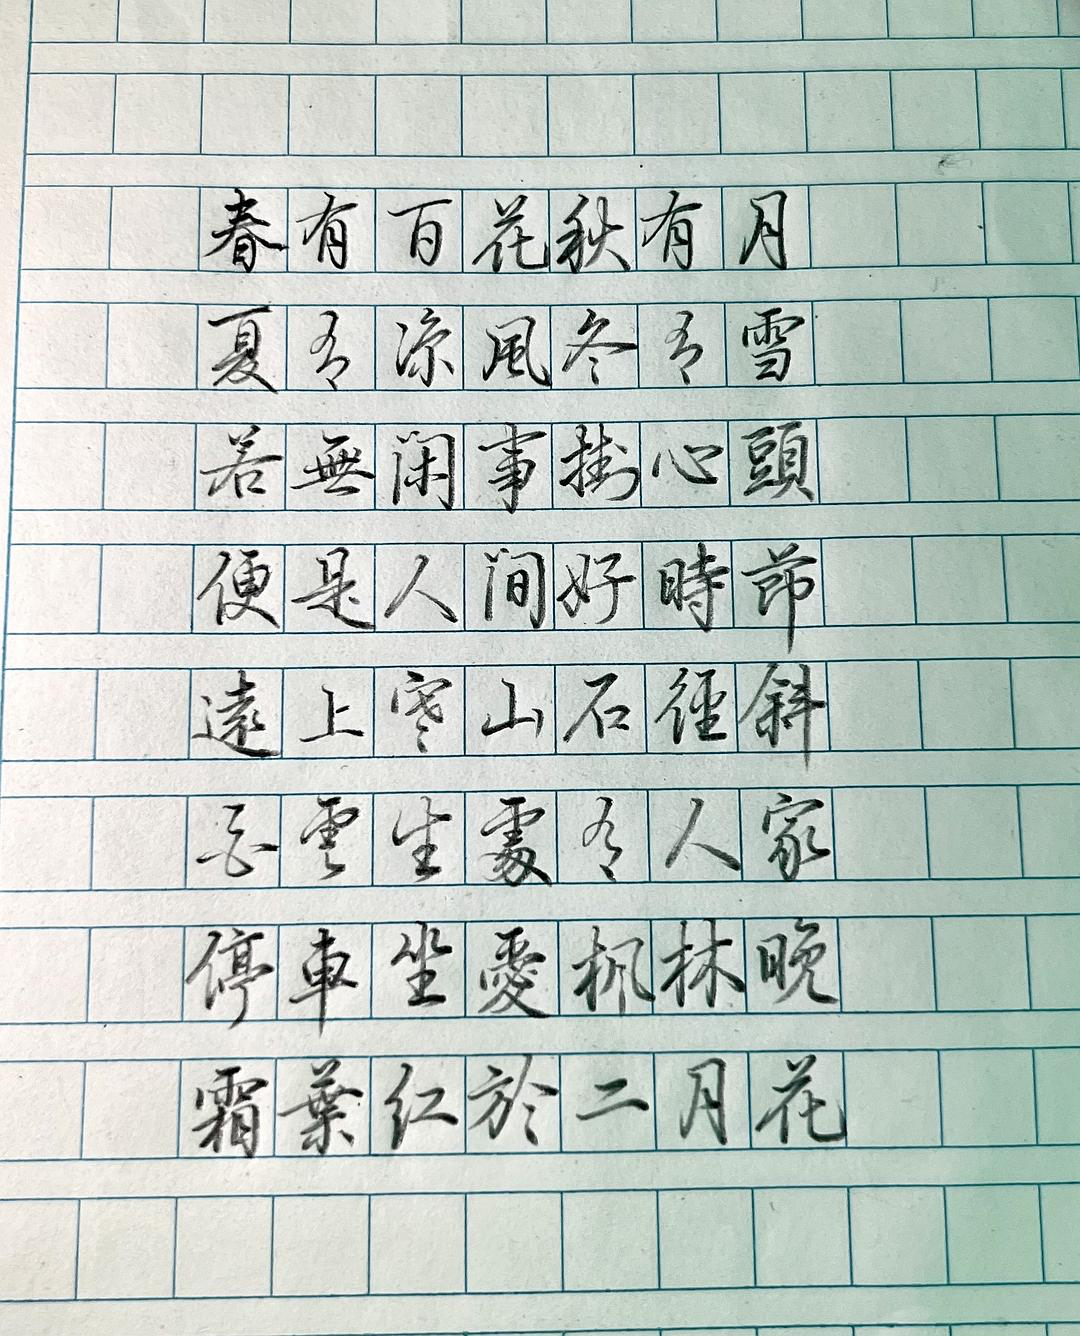 春有百花秋有月
夏有涼風冬有雪
若無闲事掛心頭
便是人间好時節
遠上寒山石徑斜
白雲生處有人家
停車坐愛枫林晚
霜葉红於二月花